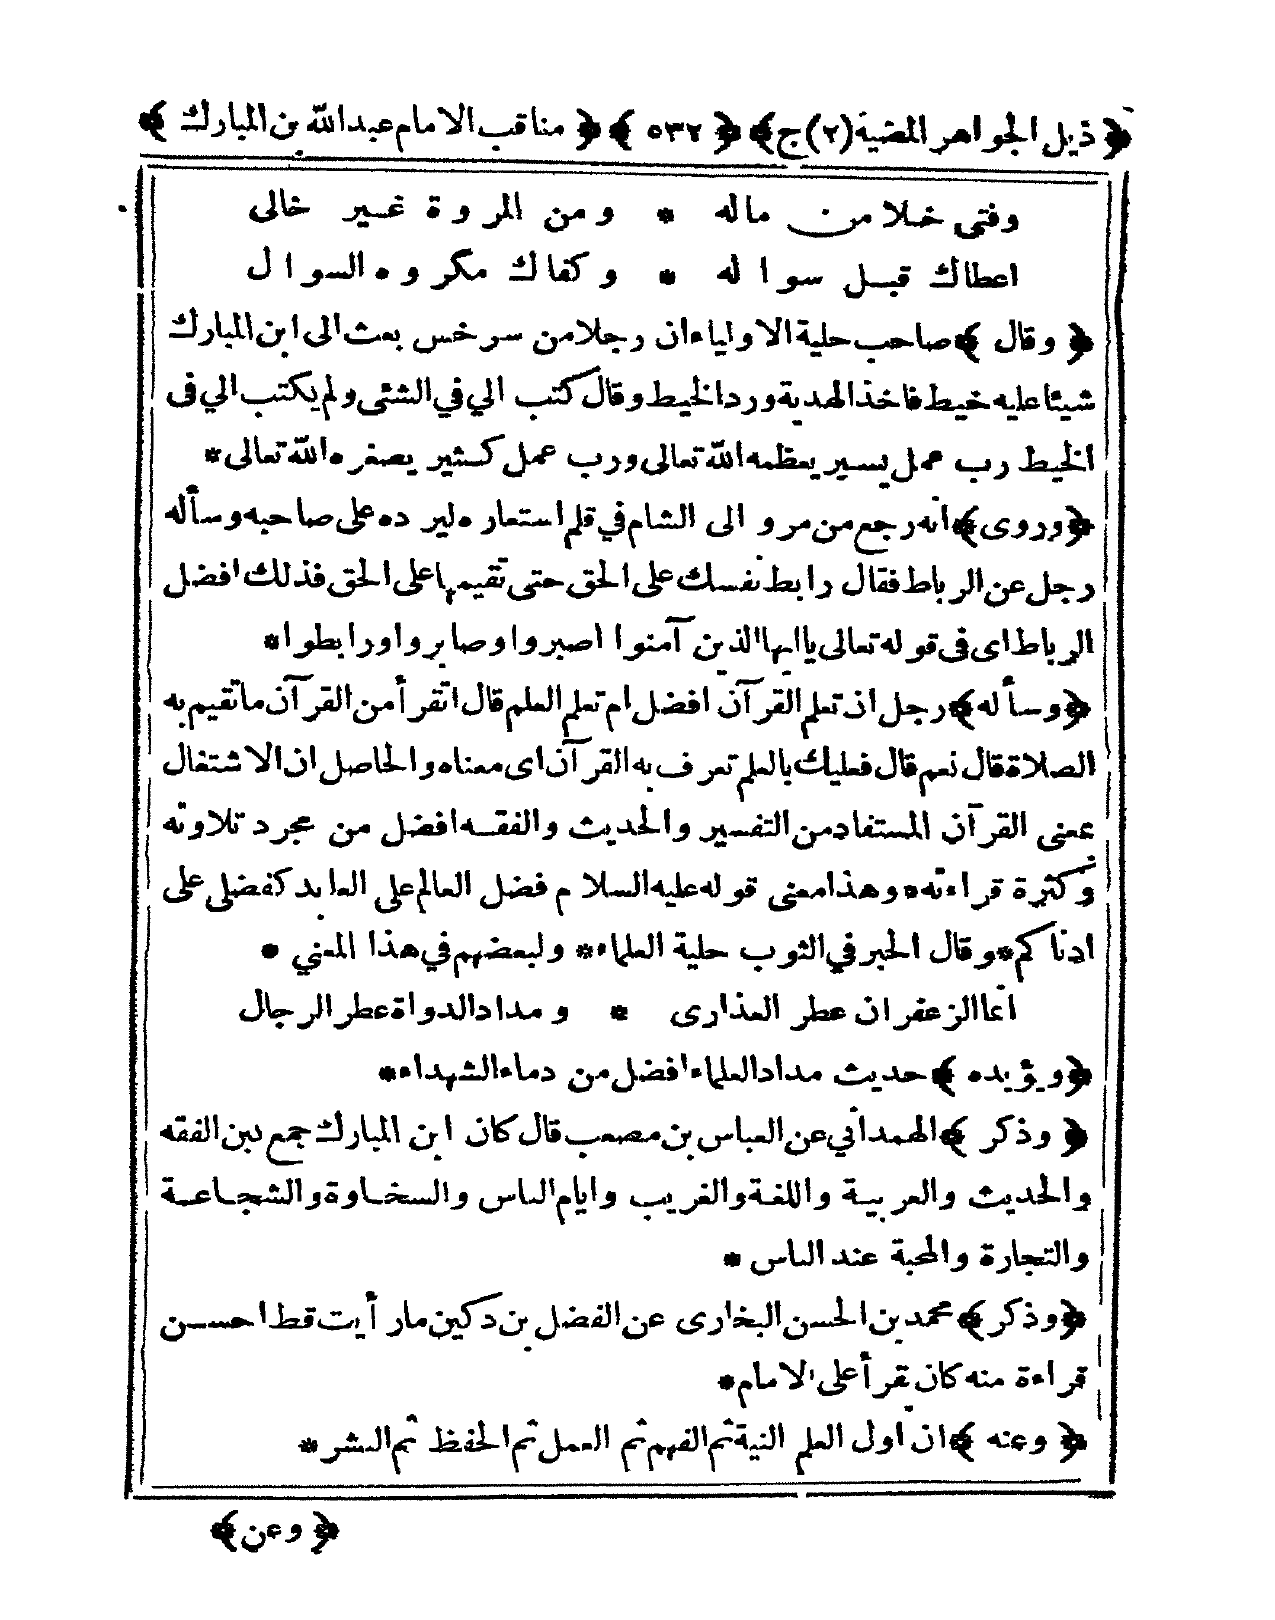 ﴿ ذيل الجواهر المضية (٢) ج ﴾ ﴿ ٥٣٢ ﴾ ﴿ مناقب الامام عبدالله بن المبارك ﴾
وفتى خلا من ماله * ومن المروة غير خالى
اعطاك قبل سواله * وكفاك مكروه السوال
﴿ وقال ﴾ صاحب حلية الاولياء ان رجلا من سرخس بعث الى ابن المبارك
شيئا عليه خيط فاخذ الهدية ورد الخيط وقال كتب الي في الشئى ولم يكتب الي فى
الخيط رب عمل يسير يعظمه الله تعالى ورب عمل كثير يصغره الله تعالى *
﴿ وروى ﴾ انه رجع من مرو الى الشام في قلم استعاره ليرده على صاحبه وسأله
رجل عن الرباط فقال رابط نفسك على الحق حتى تقيمها على الحق فذلك افضل
الرباط اى فى قوله تعالى ياايها الذين آمنوا اصبروا وصابروا ورابطوا *
﴿ وسأله ﴾ رجل ان تعلم القرآن افضل ام تعلم العلم قال اتقرأ من القرآن ماتقيم به
الصلاة قال نعم قال فعليك بالعلم تعرف به القرآن اى معناه والحاصل ان الاشتغال
بمعنى القرآن المستفاد من التفسير والحديث والفقه افضل من مجرد تلاوته
وكثرة قراءته وهذا معنى قوله عليه السلام فضل العالم على العابد كفضلى على
ادناكم * وقال الحبر في الثوب حلية العلماء * ولبعضهم في هذا المعني *
انما الزعفران عطر العذارى * ومداد الدواة عطر الرجال
﴿ ويؤيده ﴾ حديث مداد العلماء افضل من دماء الشهداء *
﴿ وذكر ﴾ الهمداني عن العباس بن مصعب قال كان ابن المبارك جمع بين الفقه
والحديث والعربية واللغة والغريب وايام الناس والسخاوة والشجاعة
والتجارة والمحبة عند الناس *
﴿ وذكر ﴾ محمد بن الحسن البخارى عن الفضل بن دكين مارأيت قط احسن
قراءة منه كان يقرأ على الامام *
﴿ وعنه ﴾ ان اول العلم النية ثم الفهم ثم العمل ثم الحفظ ثم النشر *
﴿ وعن ﴾